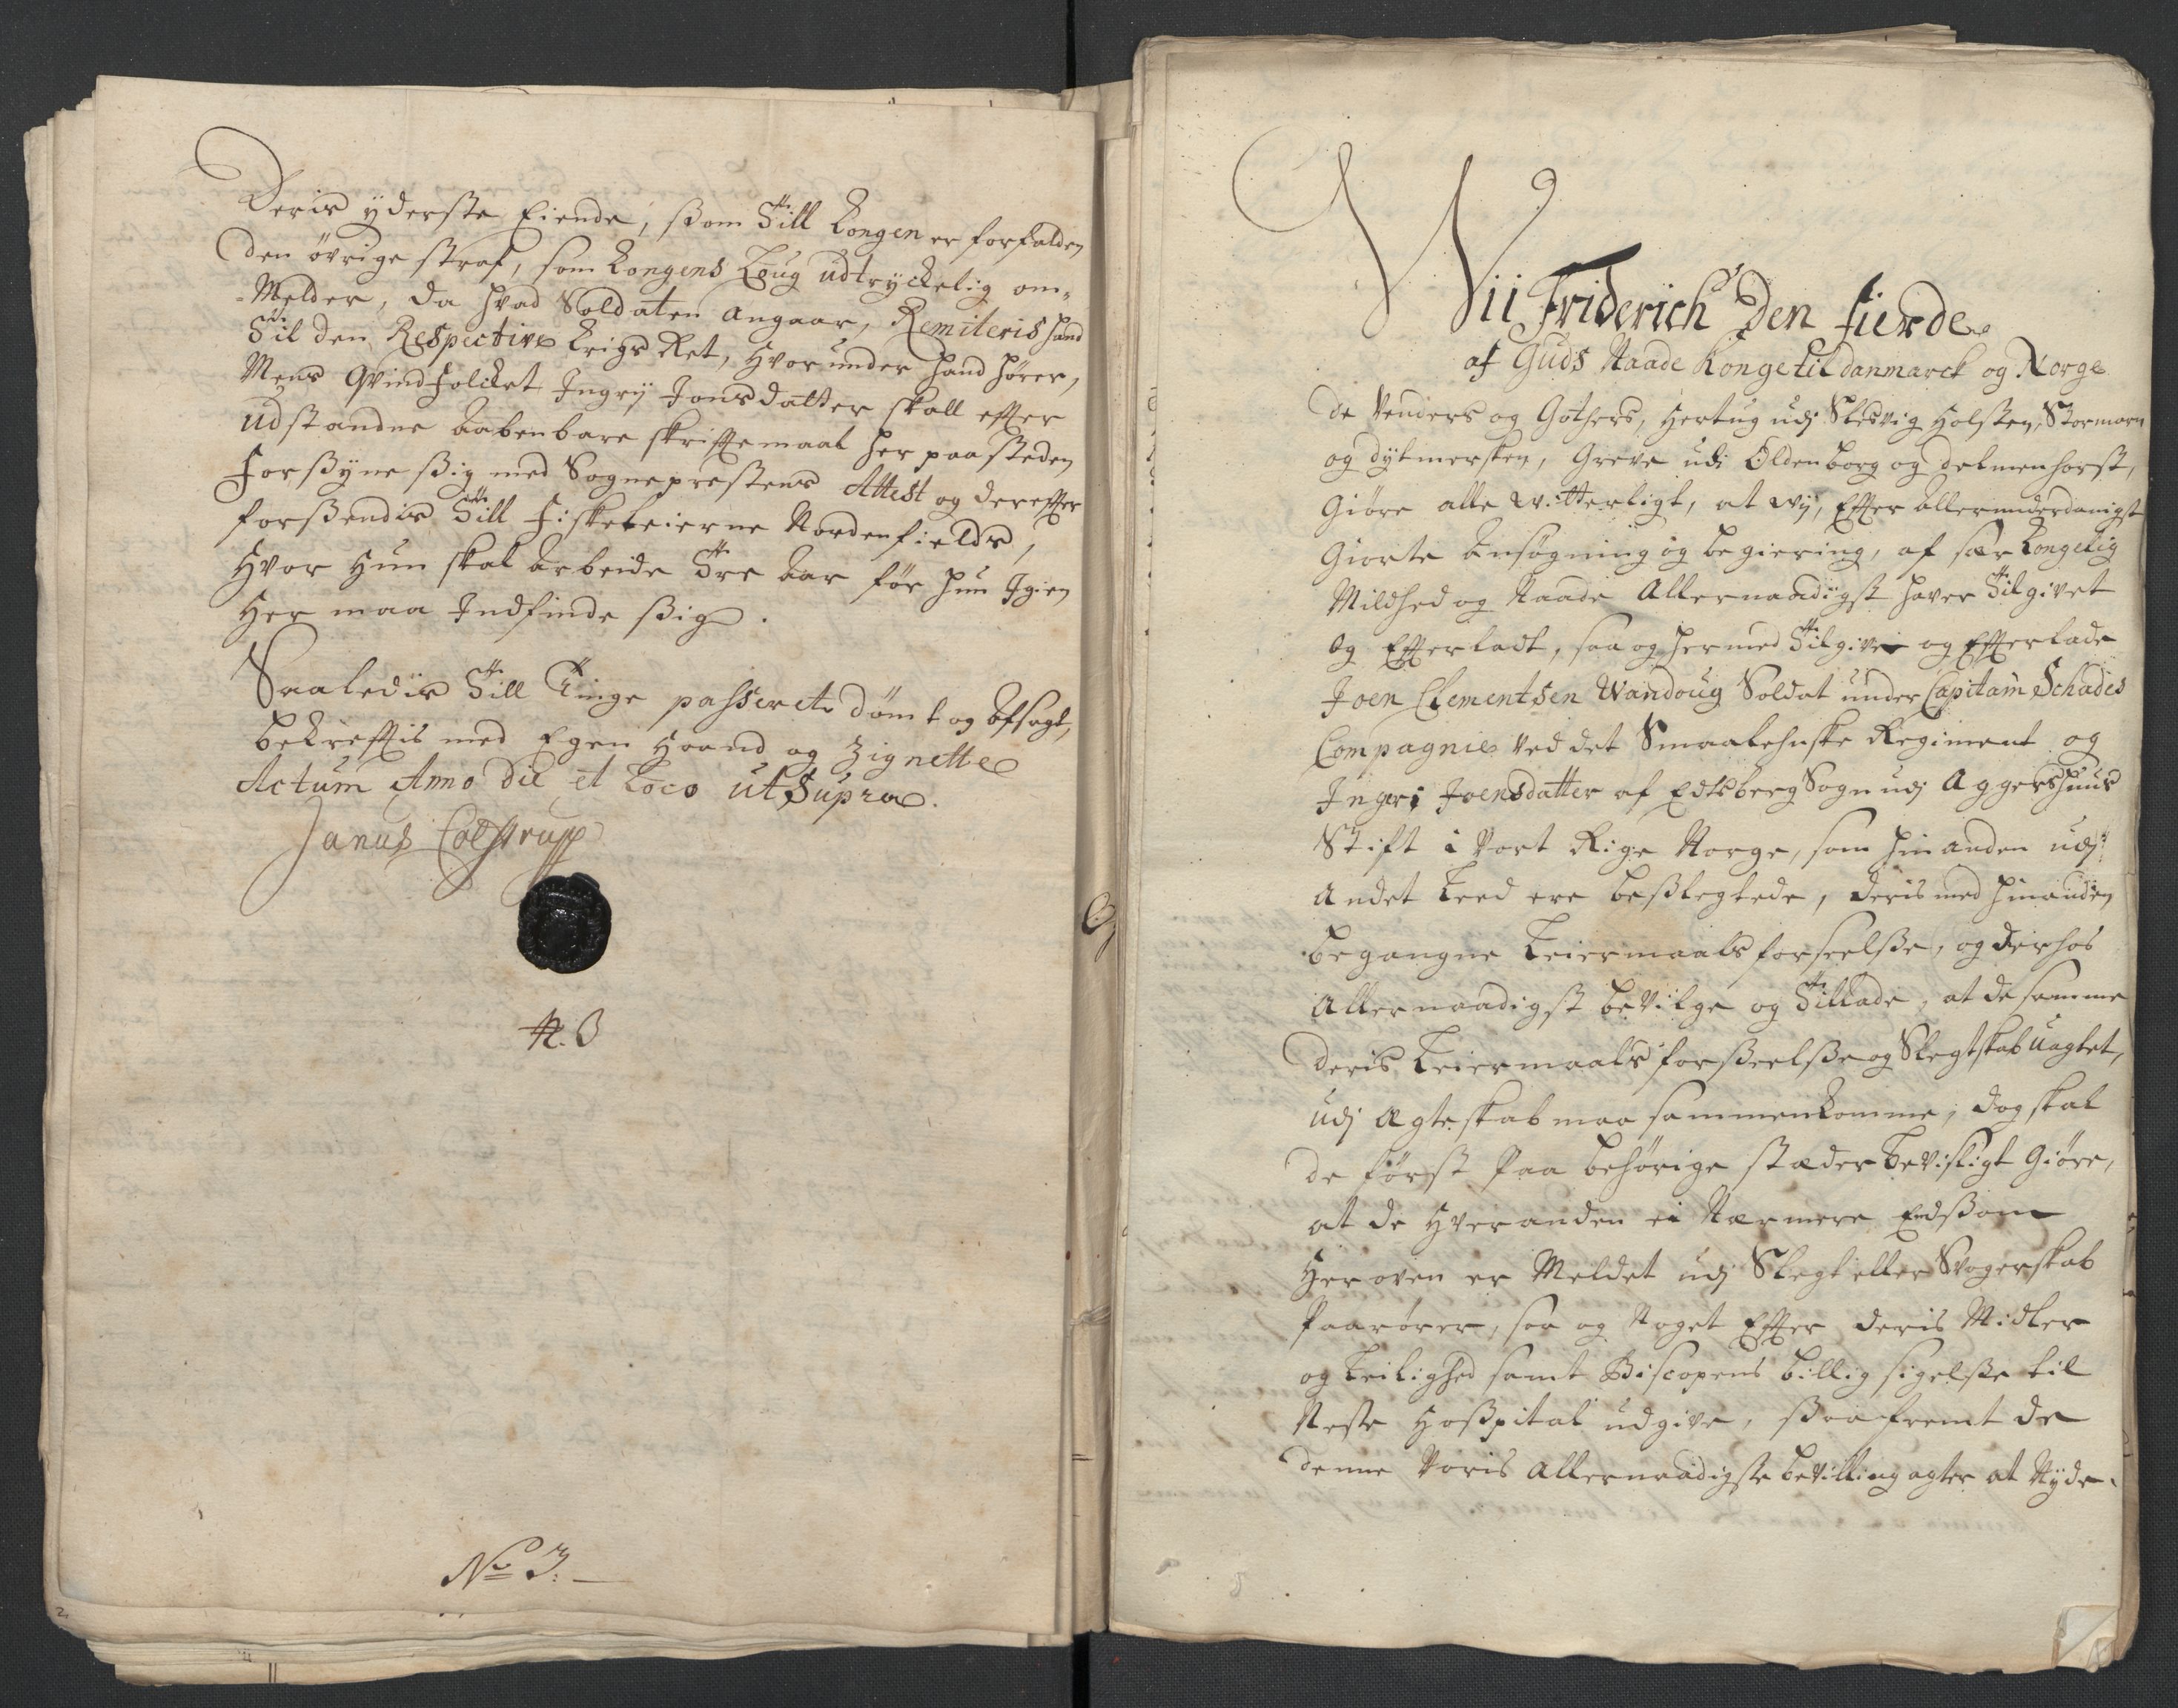 Deris yderste Eiende, ßom Till Kongen er forfalden
den øvrige straf, som Kongens Loug udtryckelig om„
Melder, da hvad Soldaten angaar, Remiteris hand
Til den Respective Krigs Ret, Hvorunder hand hører,
Mens Qvindfolcket Ingrij Jonsdatter skall effter
udstandne aabenbare skrifftemaal her paa steden
Forßÿne ßig med Sogneprestens Attest og dereffter
forßendis Till Fiskeleierne Nordenfields,
Hvor Hun skal arbeide Tre aar før hun Igien
Her maa Indfinde ßig.
Saaledis Till Tinge passeret dømt og Afsagt,
bekrefftis med Egen Haand og Zignette
Actum Anno Die et Loco ut Supra.
Janus Colstrupp
N. 3
No 3.
Wii Friderich Den fierde
af Guds Naade Konge til danmarck og Norge
de Venders og Gothers, Hertug udj Slesvig Holsten, Stormarn
og dytmersken, Greve udi Oldenborg og delmenhorst,
Giøre alle witterligt, at wij, Effter allerunderdanigst
Giorte Ansøgning og begiering, af sær Kongelig
Mildhed og Naade Allernaadigst haver Tilgivet
og Effterladt, saa og hermed Tilgive og Effterlade
Joen Clementsen Wandoug Soldat under Capitain Schades
Compagnie ved det Smaalehnske Regiment og
Ingeri Joensdatter af Edtsberg Sogn udj Aggershuus
Stift i Vort Rige Norge, som hinanden udj
andet Leed ere beßlegtede, deris med hinanden
begangne Leiermaals forseelße, og derhos
Allernaadigst bevilge og Tillade, at de samme
deris Leiermaals forßeelße og Slegtskab uagtet,
udj Ægteskab maa sammenkomme, dog skal
de først Paa behørige stæder beviisligt Giøre,
at de Hveranden ei Nærmere Endßom
Her oven er Meldet udj Slegt eller Svogerskab
Paarører, saa og Noget Effter deris Midler
og Leilighed samt Biscopens billig sigelße til
Neste Hoßpital udgive, ßaafremt de
denne Voris allernaadigste bevilling agter at Nyde.